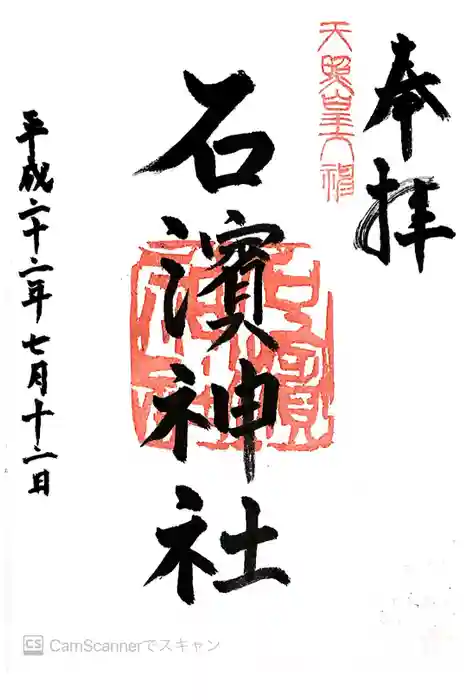 奉拝
天照皇大神
石濱神社
平成二十二年七月十二日
CS CamScannerでスキャン